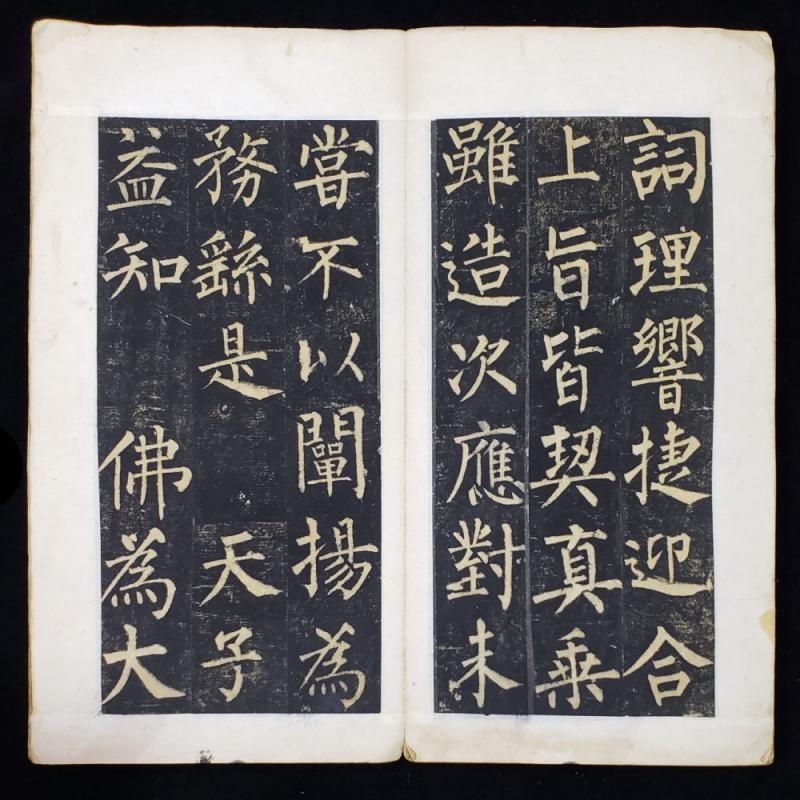 詞理響捷迎合
上旨皆契真乘
雖造次應對未
嘗不以闡揚為
務繇是 天子
益知 佛為大